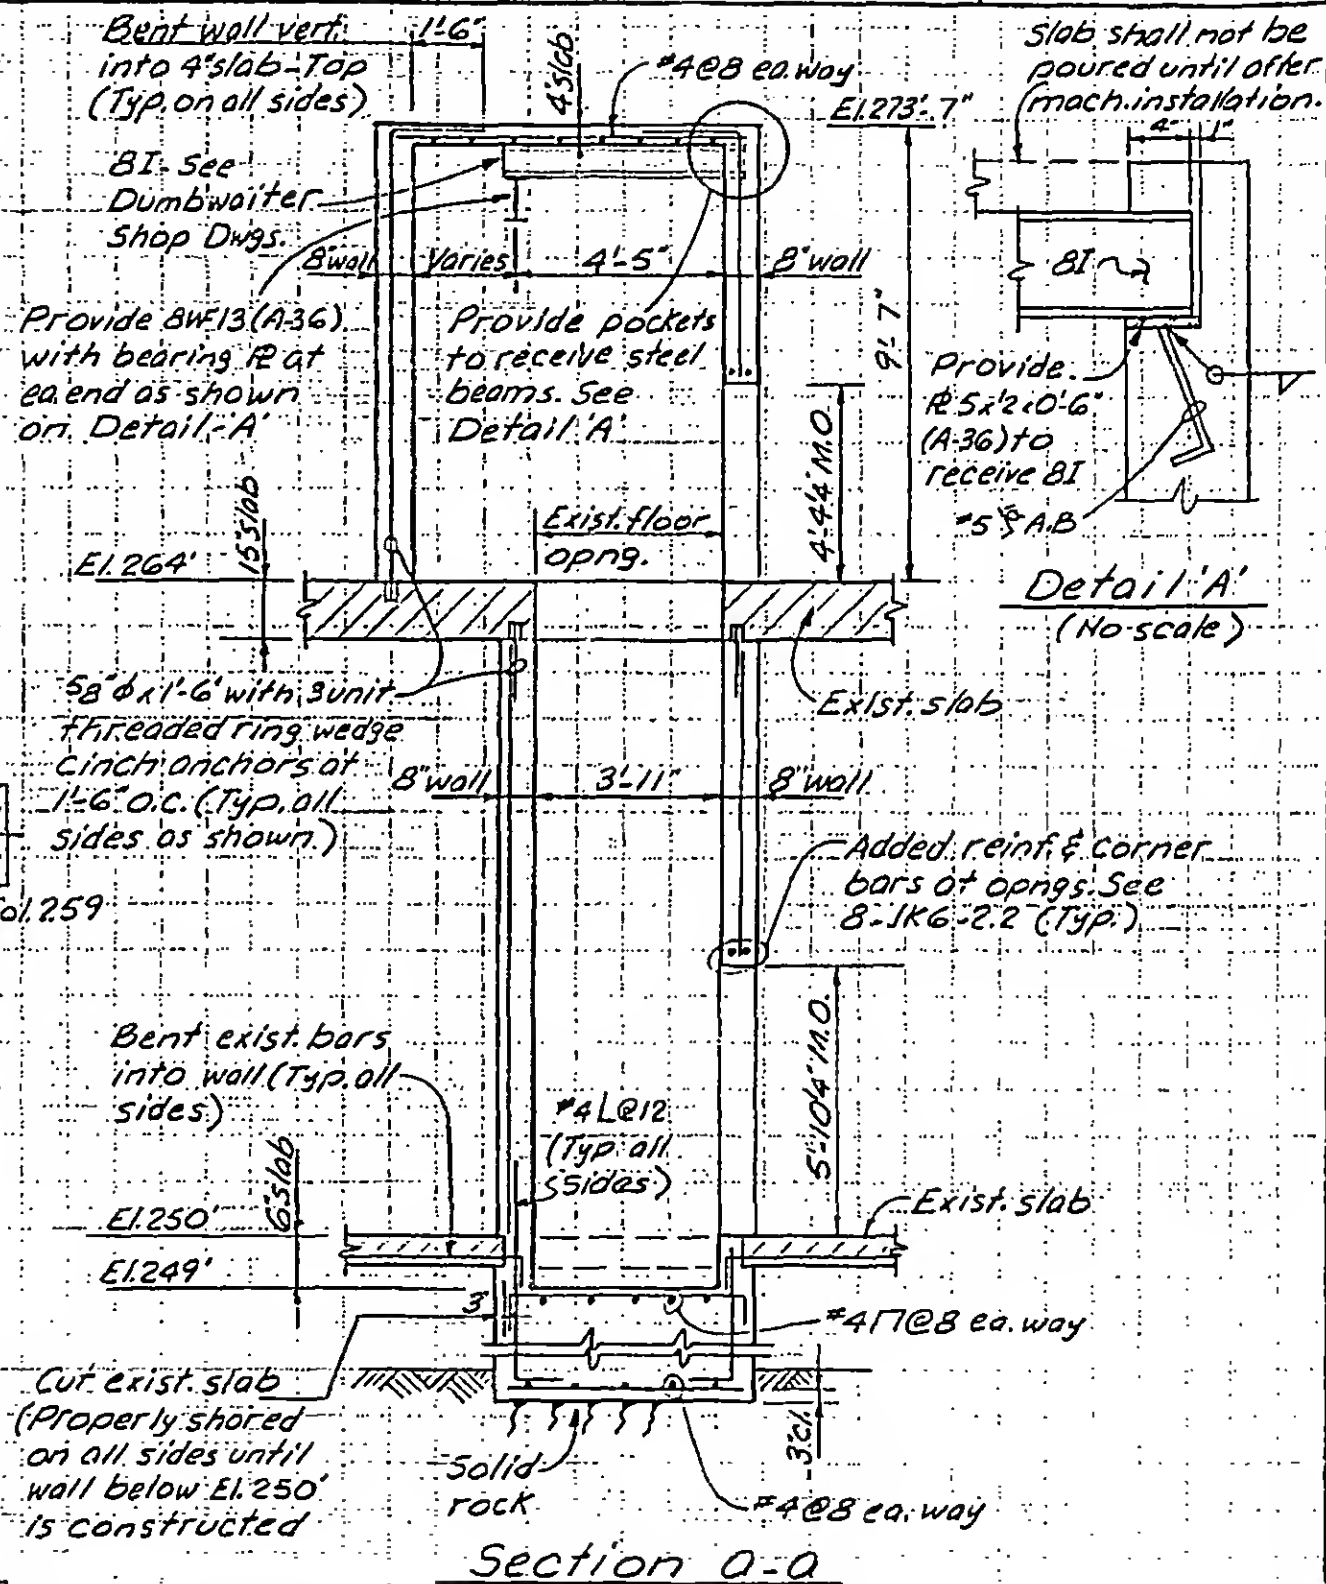 Bent wall vert.
into 4" slab-Top
(Typ. on all sides)
1'-6"
4" slab
#4@8 ea. way
El. 273'-7"
Slab shall not be
poured until after
mach. installation.
4"
1"
8I - See
Dumbwaiter
Shop Dwgs.
8" wall
Varies
4'-5"
8" wall
8I
Provide 8WF13 (A-36)
with bearing ℞ at
ea. end as shown
on Detail-'A'
Provide pockets
to receive steel
beams. See
Detail 'A'
9'-7"
4'-4¼" M.O.
Provide
℞ 5x½x0'-6"
(A-36) to
receive 8I
#5 A.B
15" slab
Exist. floor
opng.
El. 264'
Detail 'A'
(No scale)
⅝" φ x 1'-6" with 3 unit
threaded ring wedge
cinch anchors at
1'-6" O.C. (Typ. all
sides as shown.)
Exist. slab
8" wall
3'-11"
8" wall
Added reinf. & corner
bars at opngs. See
8-1K6-2.2 (Typ.)
ol. 259
Bent exist. bars
into wall (Typ. all
sides)
#4 L@12
(Typ. all
sides)
5'-10¼" M.O.
6" slab
El. 250'
Exist. slab
El. 249'
3"
#4⊓@8 ea. way
Cut exist. slab
(Properly shored
on all sides until
wall below El. 250'
is constructed
Solid
rock
3"cl.
#4@8 ea. way
Section a-a